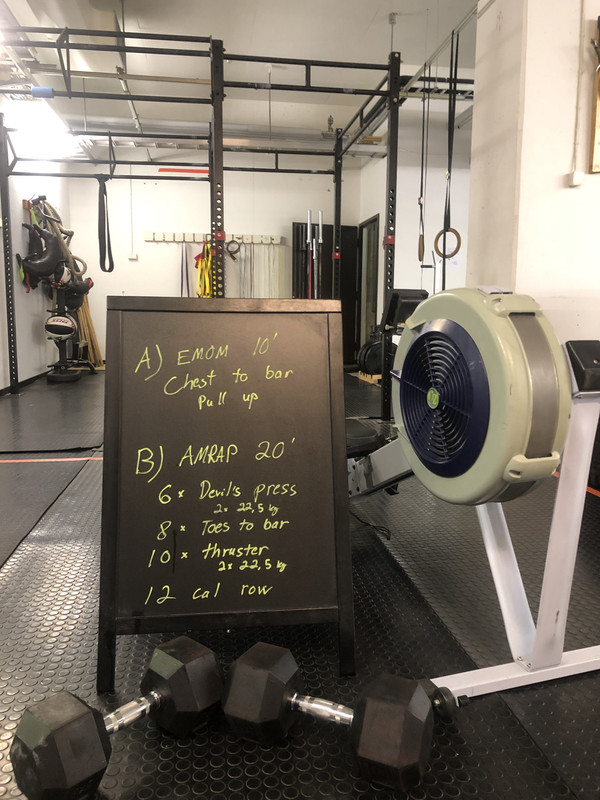 A) EMOM 10'
Chest to bar
Pull up
B) AMRAP 20'
6 x Devil's press
2x 22,5 kg
8 x Toes to bar
10 x thruster
2x 22,5 kg
12 cal row